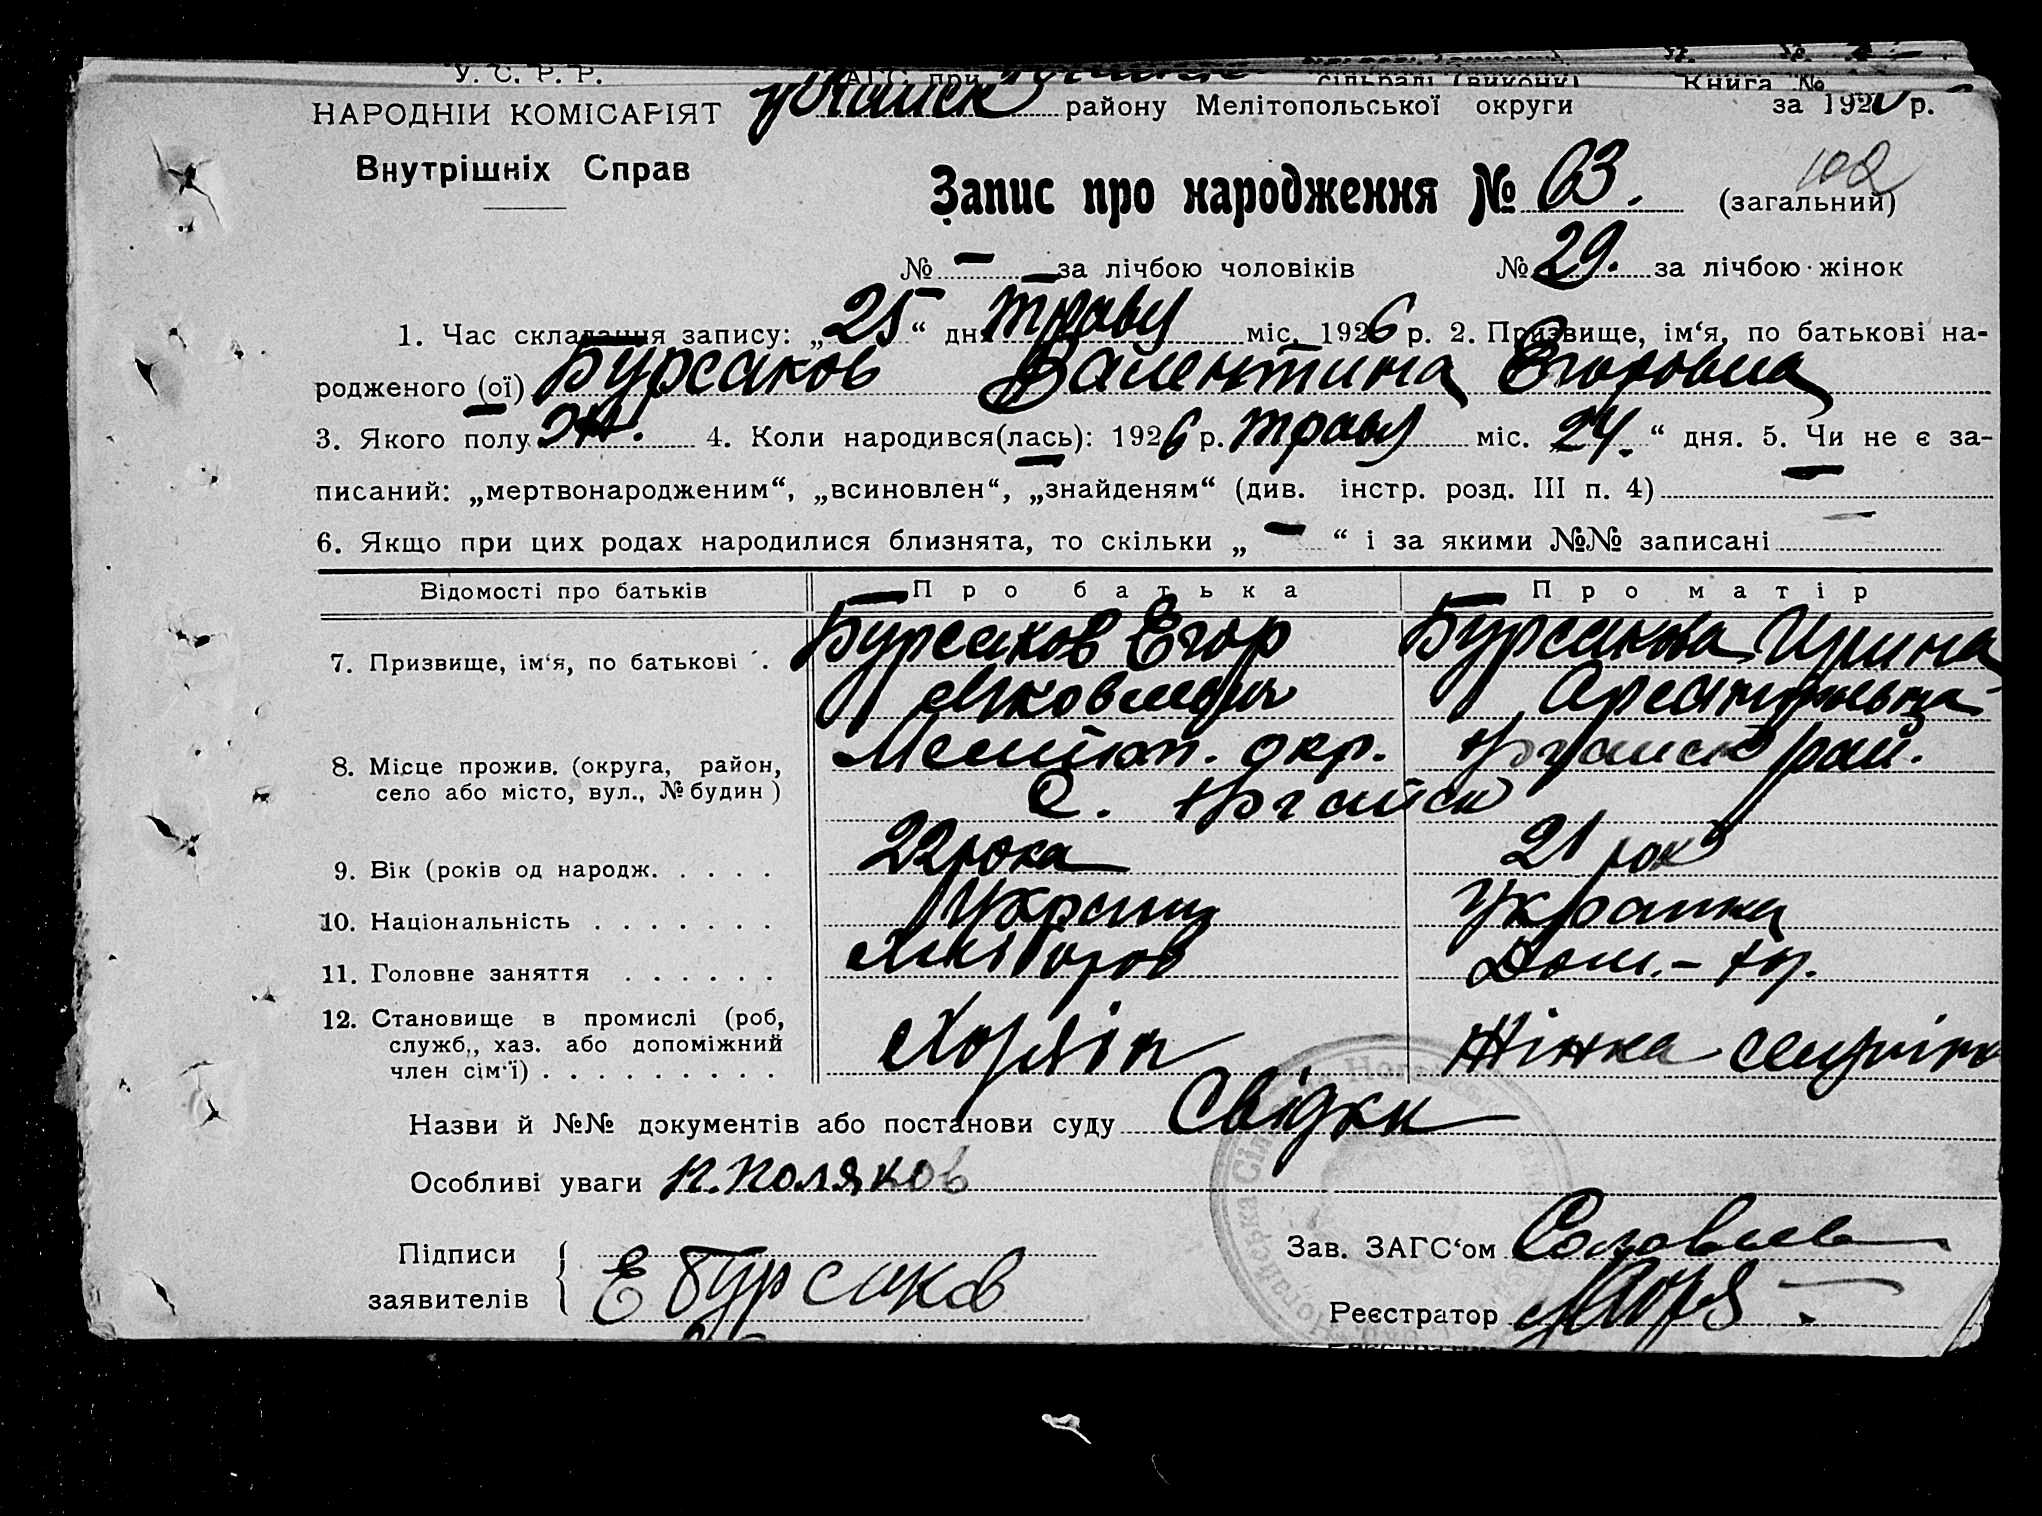 У. С. Р. Р.
НАРОДНІЙ КОМІСАРІЯТ
Внутрішніх Справ
ЗАГС при сільраді (виконк) Книга №
району Мелітопольської округи за 192 р.
Запис про народження № 63. (загальний) 102
№ – за лічбою чоловіків № 29. за лічбою жінок
1. Час складання запису: „25“ дня Травн міс. 1926 р. 2. Призвище, ім‘я, по батькові на-
родженого (ої) Бурсаков Валентина Егоровна
3. Якого полу Ж. 4. Коли народився(лась): 1926 р. Травн міс. 24. “ дня. 5. Чи не є за-
писаний: „мертвонародженим“, „всиновлен“, „знайденям“ (див. інстр. розд. III п. 4) –
6. Якщо при цих родах народилися близнята, то скільки „ – “ і за якими №№ записані –
Відомості про батьків Про батька Про матір
7. Призвище, ім‘я, по батькові . Бурсаков Егор Яковлевич Бурсакова Ирина
8. Місце прожив. (округа, район, село або місто, вул., № будин) Меліт. окр. рай.
с. Ногайск
9. Вік (років од народж. . . . . . 22 рока 21 рок
10. Національність . . . . . . . Українц Українка
11. Головне заняття . . . . . . Хлібороб Дом.
12. Становище в промислі (роб, служб., хаз. або допоміжний член сім‘ї) . . . . . . . . . Жінка
Назви й №№ документів або постанови суду Свідки
Особливі уваги Н. Поляков
Підписи заявителів Е Бурсаков
Зав. ЗАГС‘ом Соловьев
Реєстратор